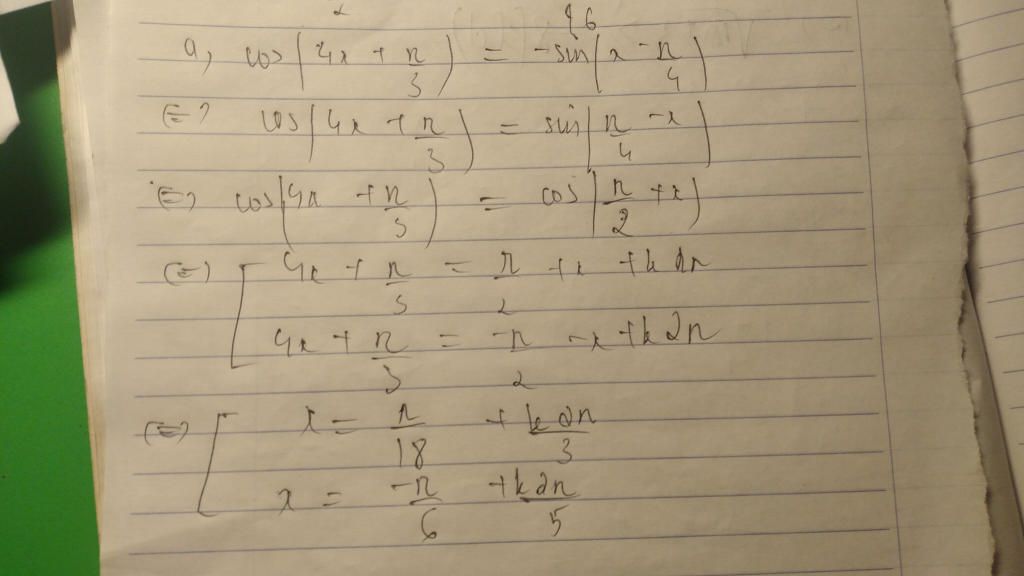 a, cos(4x + π/3) = -sin(x - π/4)
(=) cos(4x + π/3) = sin(π/4 - x)
(=) cos(4x + π/3) = cos(π/2 + x)
(=) [ 4x + π/3 = π/2 + x + k2π
4x + π/3 = -π/2 - x + k2π
(=) [ x = π/18 + k2π/3
x = -π/6 + k2π/5